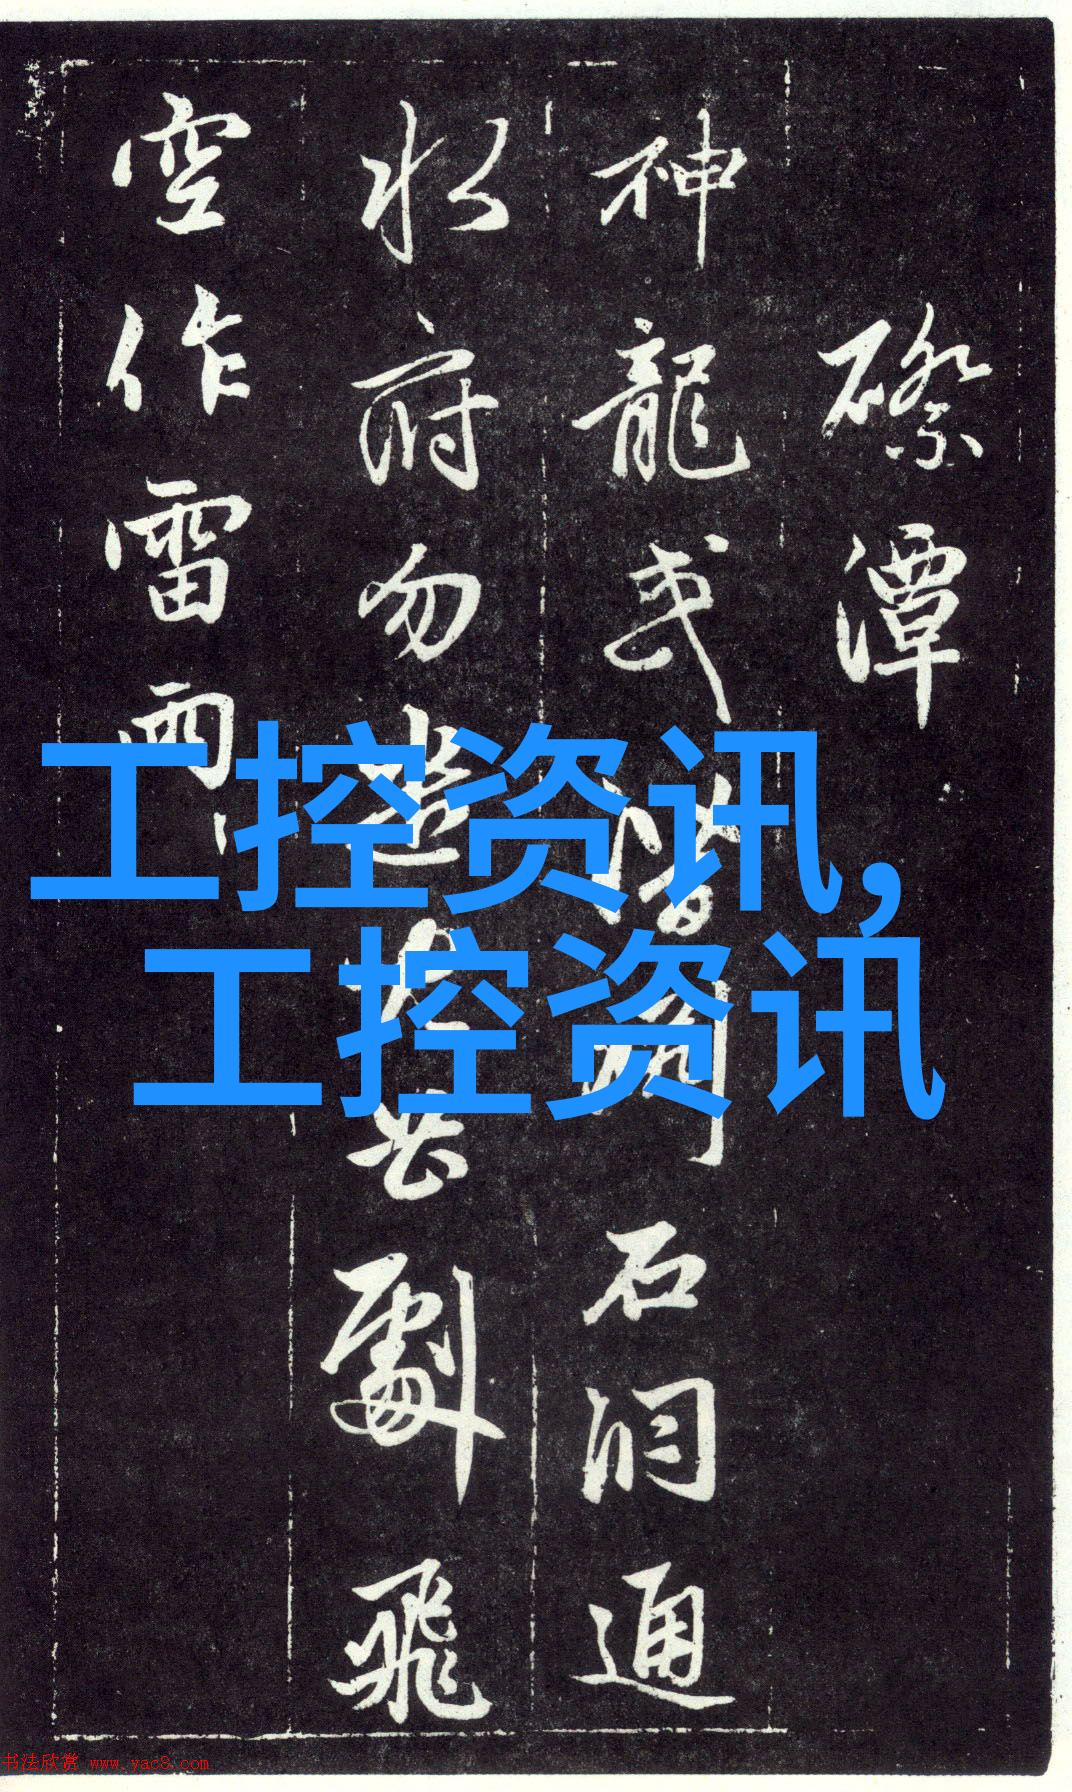 磜潭
神龍或潛石洞通
水府勿劇飛
空作雷雨
工控资讯,
工控资讯
书法欣赏 www.yac8.com